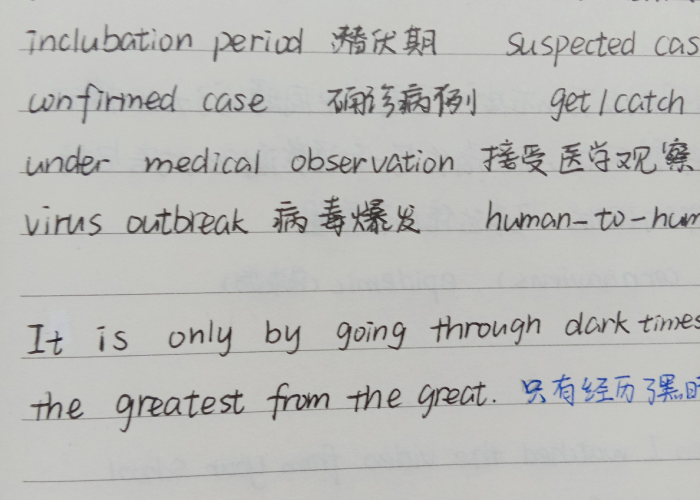 inclubation period 潜伏期 suspected cas
confirmed case 确诊病例 get/catch
under medical observation 接受医学观察
virus outbreak 病毒爆发 human-to-hum
It is only by going through dark times
the greatest from the great. 只有经历了黑暗